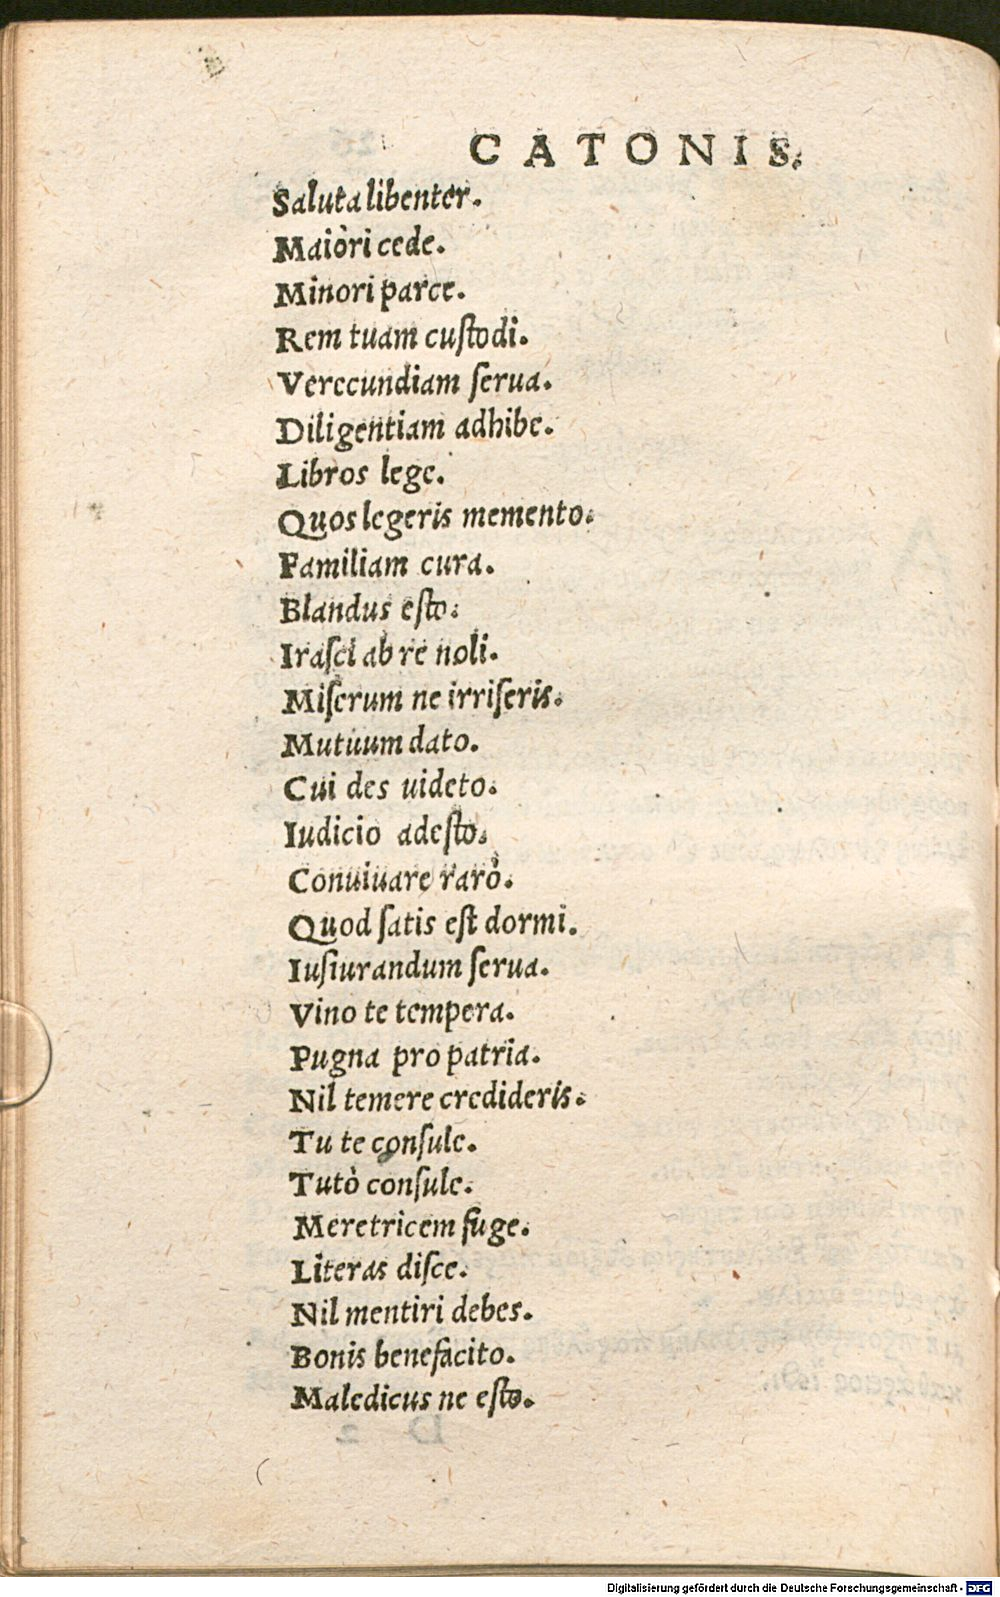 CATONIS.
Saluta libenter.
Maiòri cede.
Minori parce.
Rem tuam cuſtodi.
Verecundiam ſerua.
Diligentiam adhibe.
Libros lege.
Quos legeris memento.
Familiam cura.
Blandus eſto.
Iraſci ab re noli.
Miſerum ne irriſeris.
Mutuum dato.
Cui des uideto.
Iudicio adeſto.
Conuiuare rarò.
Quod ſatis eſt dormi.
Iuſiurandum ſerua.
Vino te tempera.
Pugna pro patria.
Nil temere credideris.
Tu te conſule.
Tutò conſule.
Meretricem fuge.
Literas diſce.
Nil mentiri debes.
Bonis benefacito.
Maledicus ne eſto.
Digitalisierung gefördert durch die Deutsche Forschungsgemeinschaft - DFG